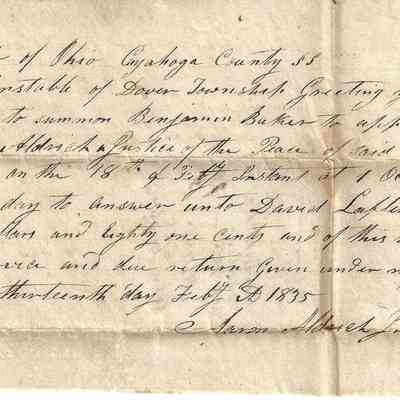 of Ohio Cuyahoga County SS
nstable of Dover Township Greeting
to summon Benjamin Baker to app
Aldrich a Justice of the Peace of said
on the 18th of Feby Instant at 1 Oc
day to answer unto David
llars and Eighty one cents and of this
vice and due return Given under
thirteenth day Feby AD 1835
Aaron Aldrich